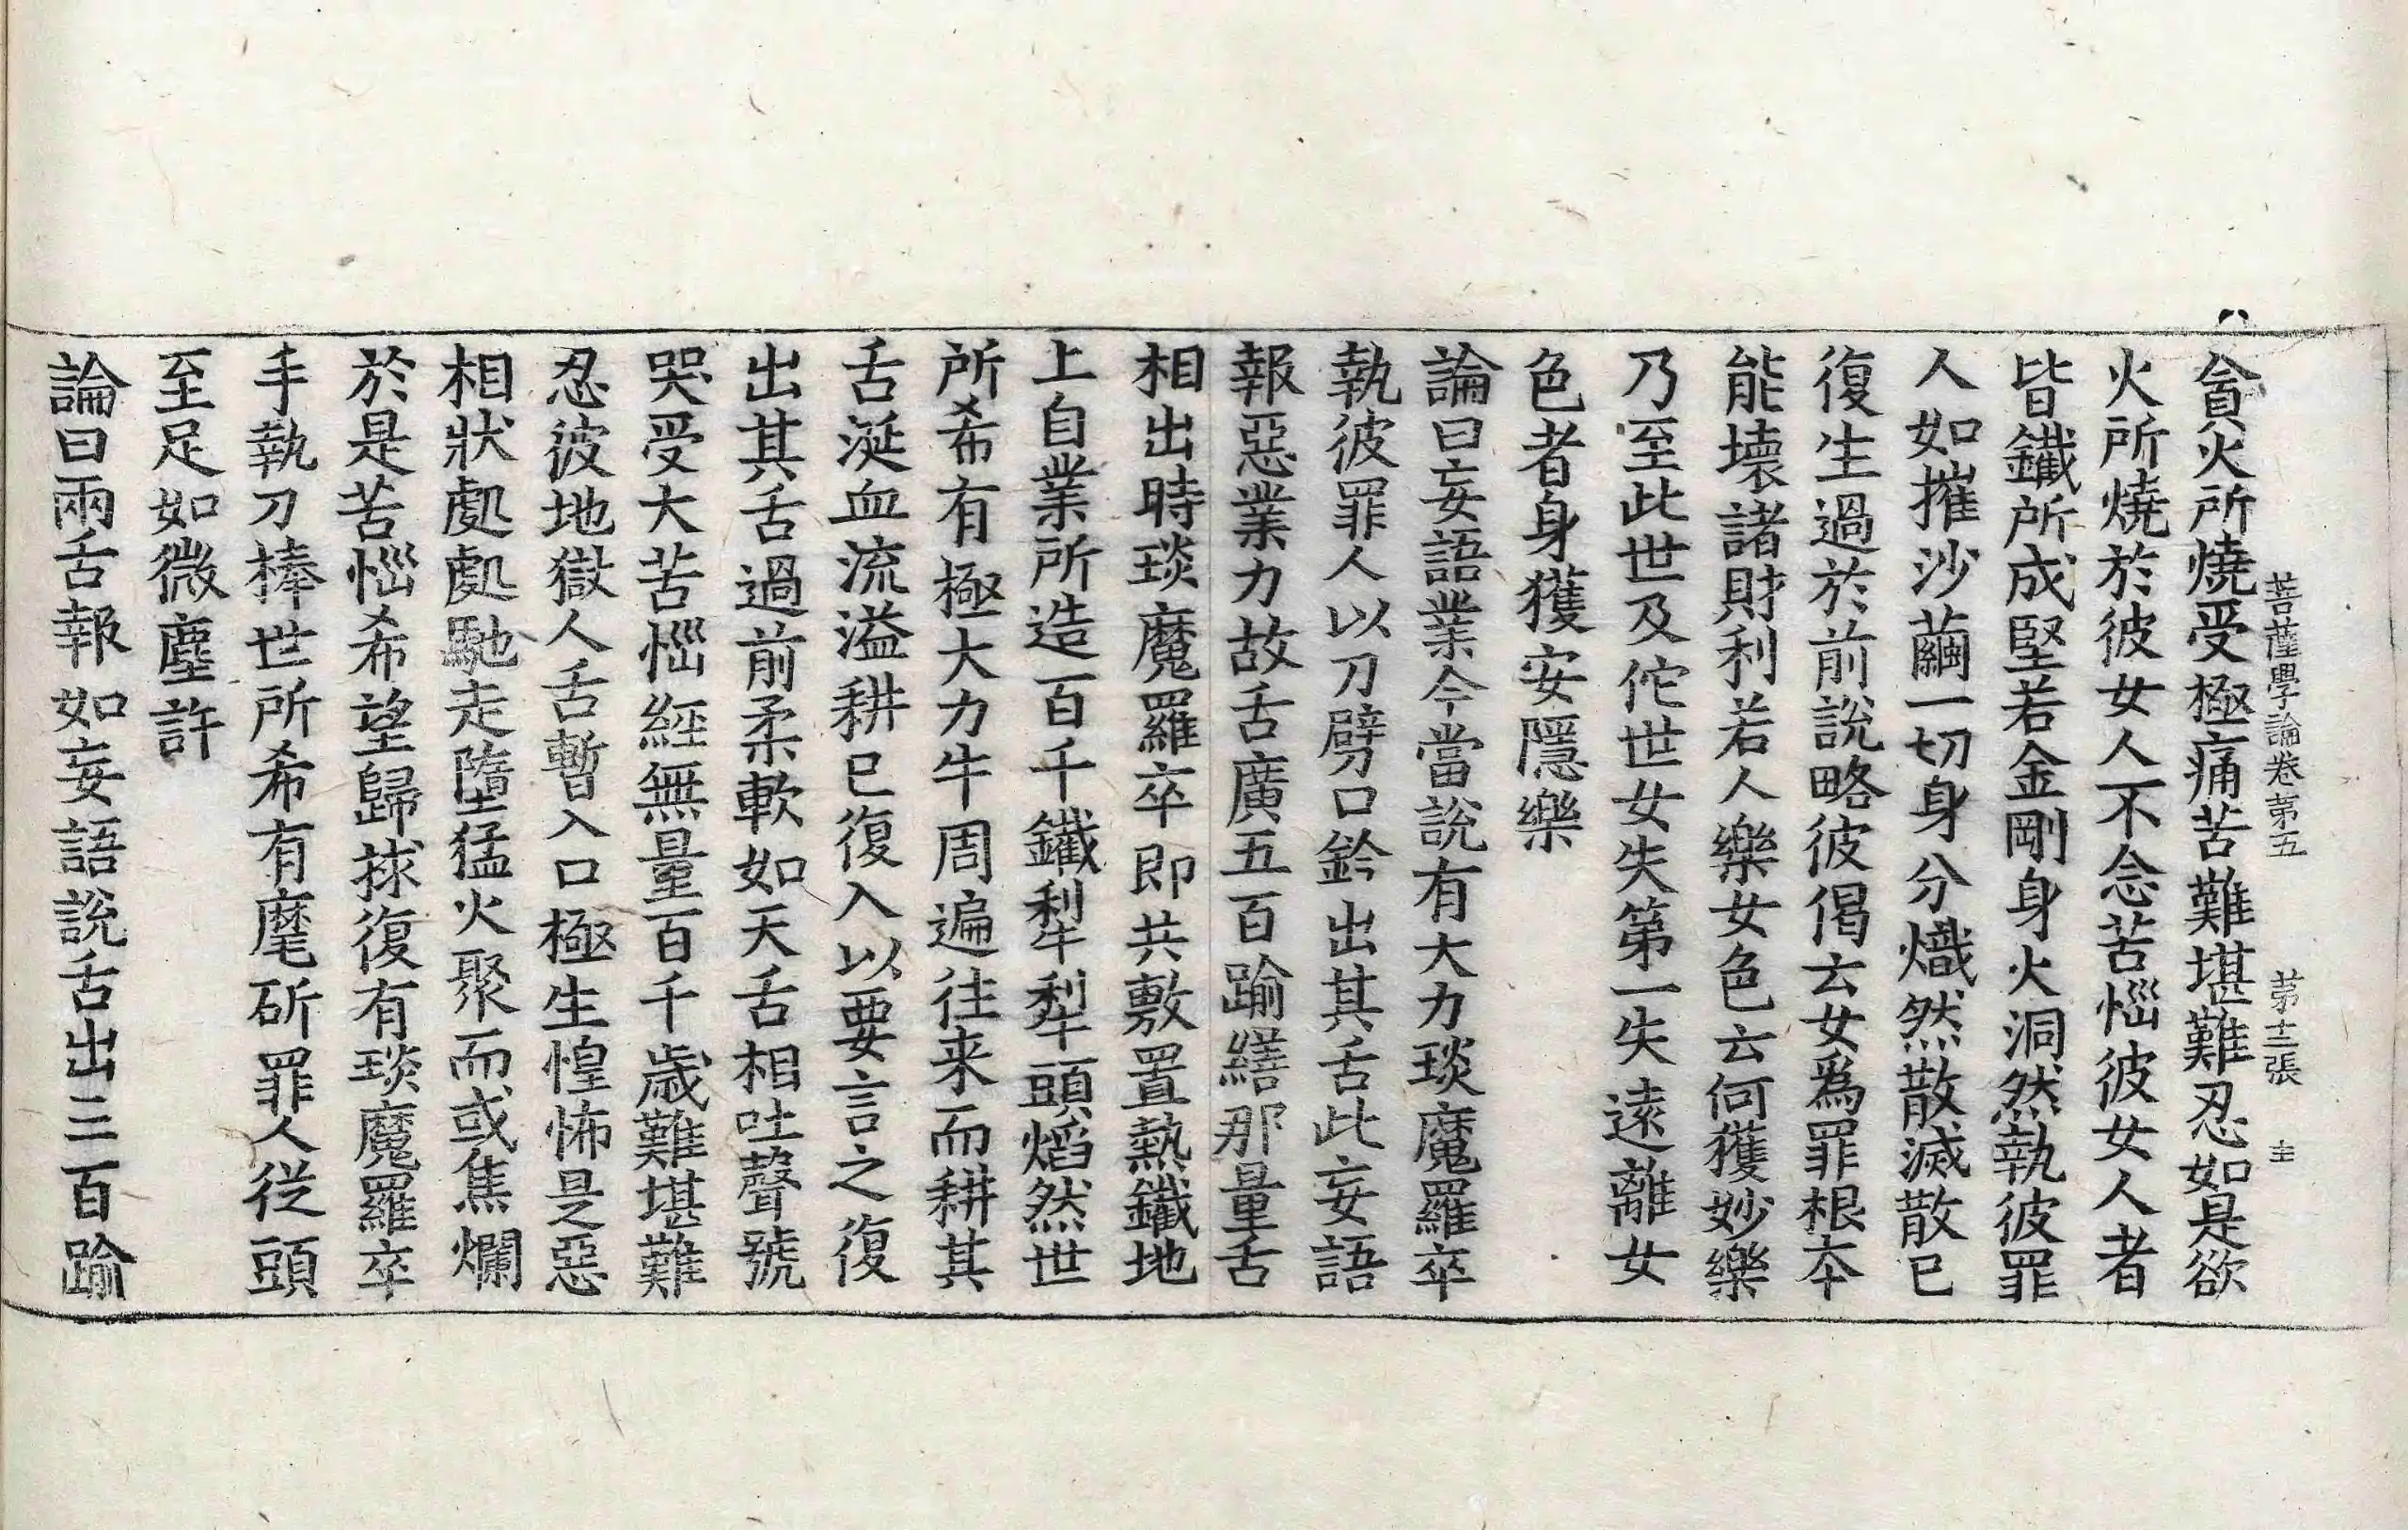 菩薩學論卷第五　第十二張　主
貪火所燒受極痛苦難堪難忍如是欲
火所燒於彼女人不念苦惱彼女人者
皆鐵所成堅若金剛身火洞然執彼罪
人如摧沙繭一切身分熾然散滅散已
復生過於前說略彼偈云女爲罪根本
能壞諸財利若人樂女色云何獲妙樂
乃至此世及佗世女失第一失遠離女
色者身獲安隱樂
論曰妄語業今當說有大力琰魔羅卒
執彼罪人以刀劈口鈐出其舌此妄語
報惡業力故舌廣五百踰繕那量舌
相出時琰魔羅卒即共敷置熱鐵地
上自業所造百千鐵犁犁頭熖然世
所希有極大力牛周遍往来而耕其
舌涎血流溢耕已復入以要言之復
出其舌過前柔軟如天舌相吐聲號
哭受大苦惱經無量百千歲難堪難
忍彼地獄人舌暫入口極生惶怖是惡
相狀處處馳走墮猛火聚而或焦爛
於是苦惱希望歸救復有琰魔羅卒
手執刀棒世所希有麾斫罪人從頭
至足如微塵許
論曰兩舌報如妄語說舌出三百踰